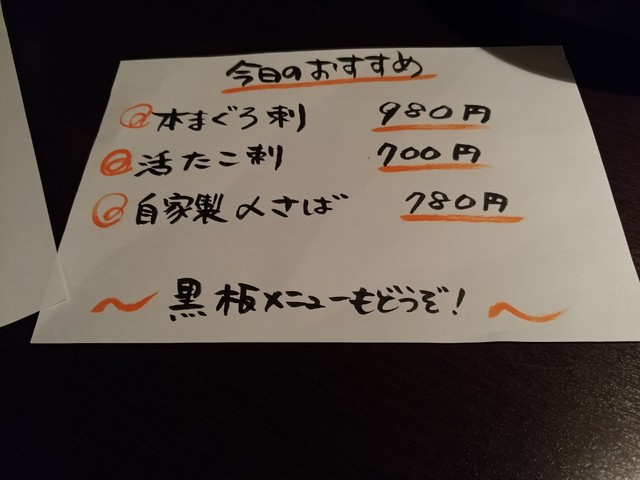 今日のおすすめ
@本まぐろ刺 980円
@活たこ刺 700円
@自家製〆さば 780円
〜黒板メニューもどうぞ!〜